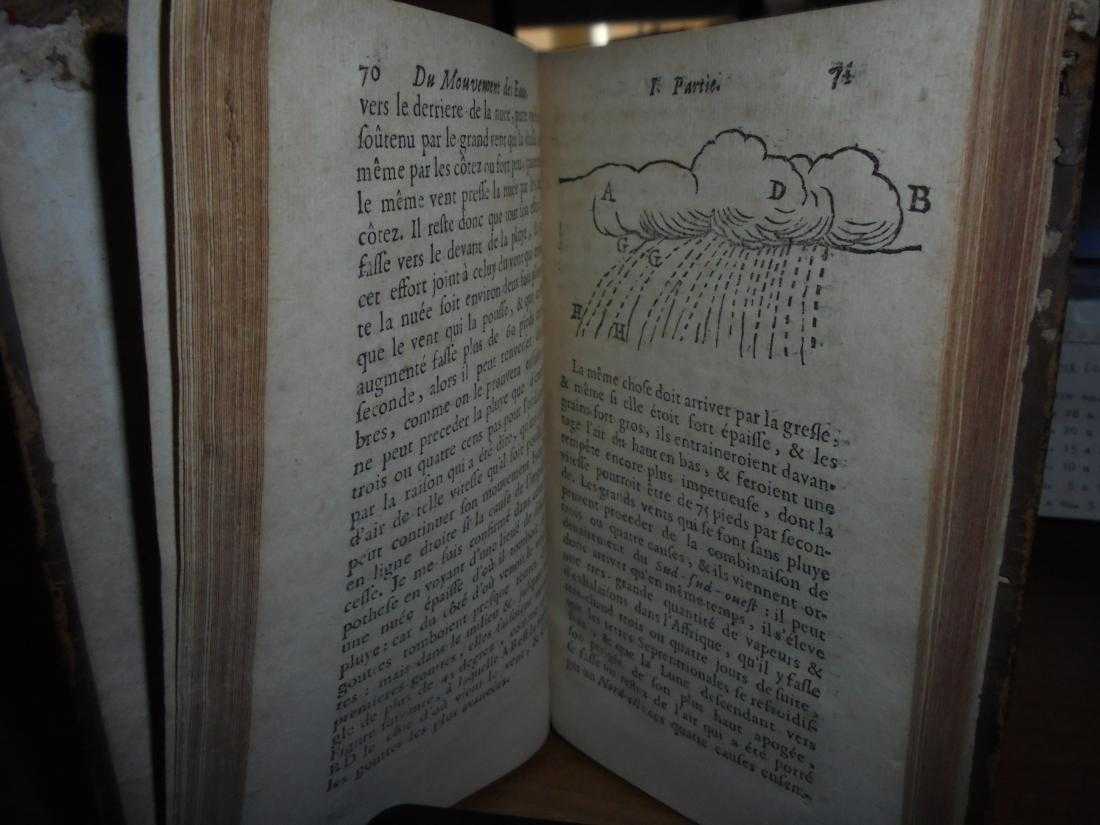 70 Du Mouvement des Eaux
vers le derriere de la nuee,
ſoûtenu par le grand vent qui la
même par les côtez ou fort peu,
le même vent preſſe la nuée par les
côtez. Il reſte donc que tout
faſſe vers le devant de la pluye,
cet effort joint à celuy du vent qui
te la nuée ſoit environ deux fois
que le vent qui la pouſſe, & que
augmenté faſſe plus de 60 pieds
ſeconde, alors il peut renverſer
bres, comme on le prouvera
ne peut preceder la pluye que
trois ou quatre cens pas pour
par la raiſon qui a été dite,
d'air de telle viteſſe qu'il ſoit
peut continuer ſon mouvement
en ligne droite ſi la cauſe de
ceſſe. Je me ſuis confirmé dans
potheſe en voyant d'une lieuë de
une nuée épaiſſe d'où il tomboit
pluye: car du côté d'où venoit le
gouttes tomboient preſque
tes: mais dans le milieu &
premieres gouttes, elles faiſoient
gle de plus de 45 degrez
Figure ſuivante, à laquelle ABeſt
B.D le côté d'où vient le vent, &
les gouttes les plus avancées.
I. Partie. 71
A
D
B
G
G
H
H
La même choſe doit arriver par la greſle;
& même ſi elle étoit fort épaiſſe, & les
grains fort gros, ils entraineroient davan-
tage l'air du haut en bas, & feroient une
tempête encore plus impetueuſe, dont la
viteſſe pourroit être de 75 pieds par ſecon-
de. Les grands vents qui ſe font ſans pluye
peuvent proceder de la combinaiſon de
trois ou quatre cauſes, & ils viennent or-
dinairement du Sud-ſud-oueſt: il peut
donc arriver qu'en même-temps, il s'éleve
une tres-grande quantité de vapeurs &
d'exhalaiſons dans l'Affrique, qu'il y faſſe
tres-chaud trois ou quatre jours de ſuite,
que les terres Septentrionales ſe refroidiſ-
ſent, & que la Lune, deſcendant vers
ſon perigée, de ſon plus haut apogée,
& faſſe un reflux de l'air qui a été porté
par un Nord-eſt; ces quatre cauſes enſem-